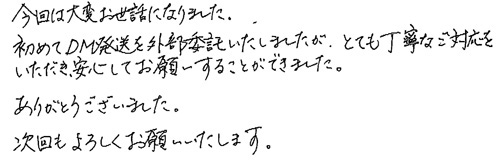 今回は大変お世話になりました。
初めてDM発送を外部委託いたしましたが、とても丁寧なご対応を
いただき、安心してお願いすることができました。
ありがとうございました。
次回もよろしくお願いいたします。